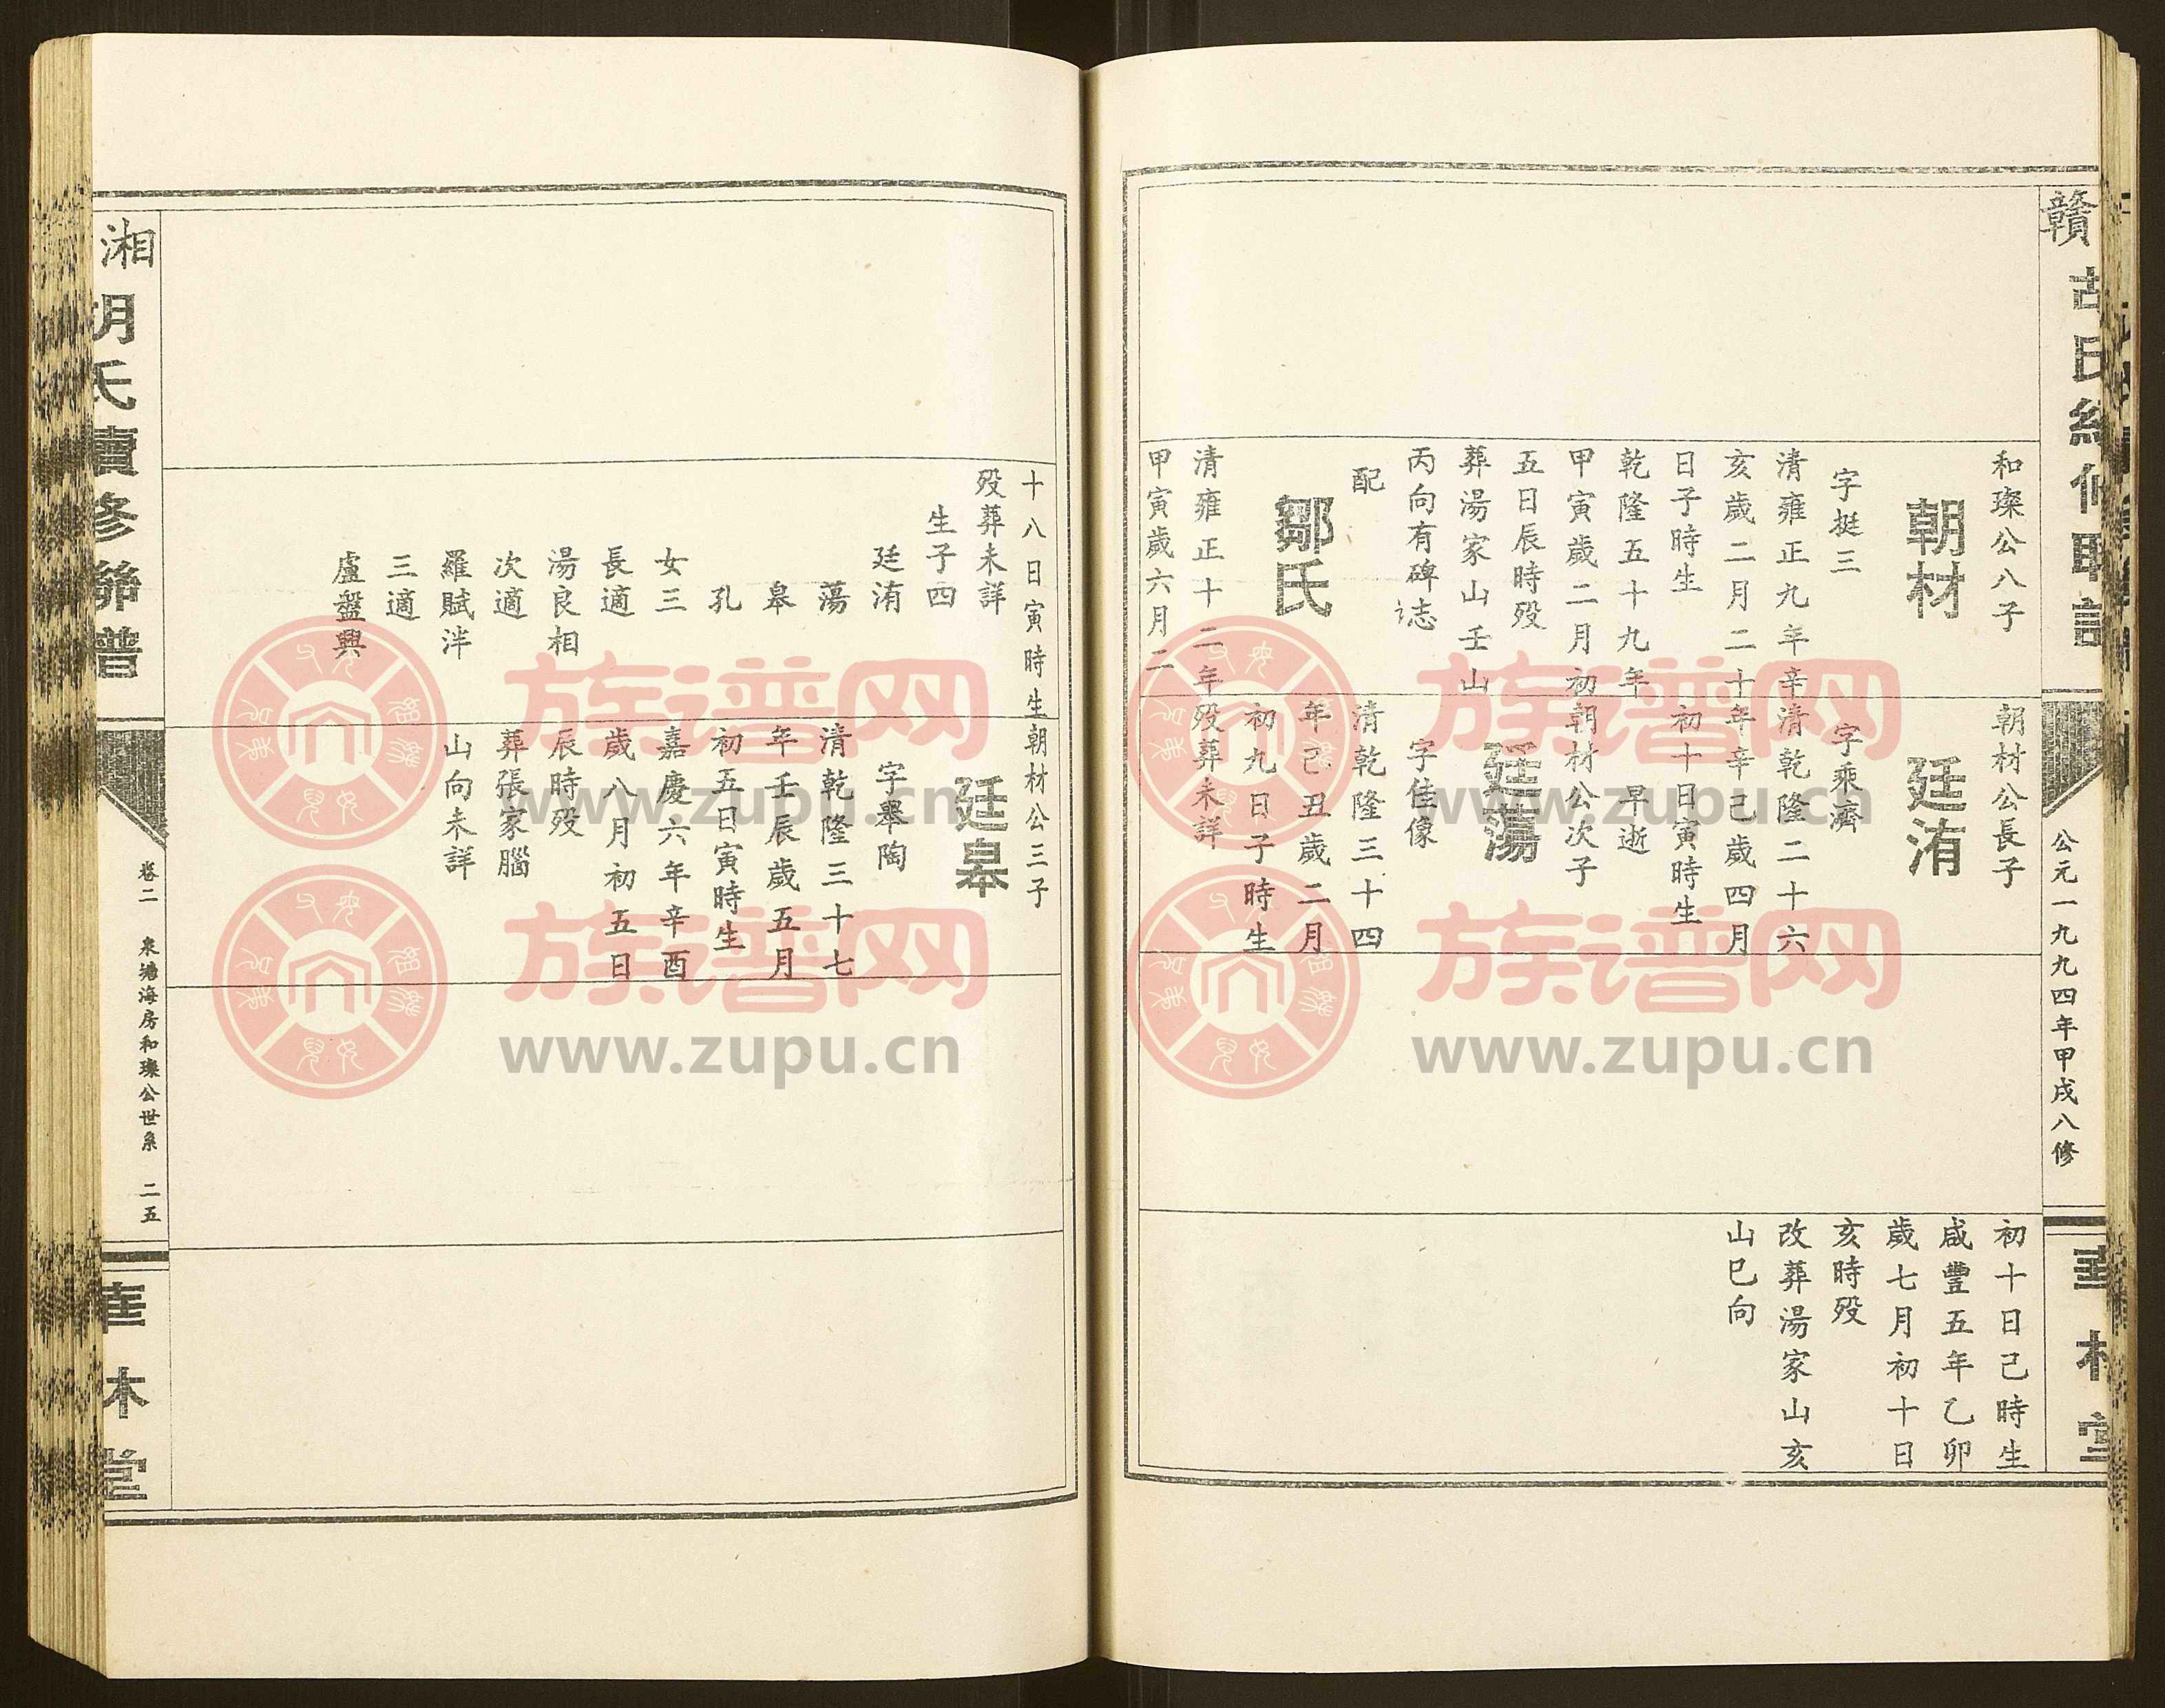 贛
胡氏續修聯譜
公元一九九四年甲戌八修
華林堂
和璨公八子
朝材
字挺三
清雍正九年辛
亥歲二月二十
日子時生
乾隆五十九年
甲寅歲二月初
五日辰時殁
葬湯家山壬山
丙向有碑誌
配
鄒氏
清雍正十二年
甲寅歲六月二
朝材公長子
廷洧
字乘濟
清乾隆二十六
年辛己歲四月
初十日寅時生
早逝
朝材公次子
廷蕩
字佳像
清乾隆三十四
年己丑歲二月
初九日子時生
殁葬未詳
初十日己時生
咸豐五年乙卯
歲七月初十日
亥時殁
改葬湯家山亥
山巳向
十八日寅時生
殁葬未詳
生子四
廷洧
蕩
皋
孔
女三
長適
湯良相
次適
羅賦泮
三適
盧盤興
朝材公三子
廷皋
字舉陶
清乾隆三十七
年壬辰歲五月
初五日寅時生
嘉慶六年辛酉
歲八月初五日
辰時殁
葬張家腦
山向未詳
湘
胡氏續修聯譜
卷二 泉港海房和璨公世系 二五
華林堂
族谱网
www.zupu.cn
族谱网
www.zupu.cn
族谱网
www.zupu.cn
族谱网
www.zupu.cn